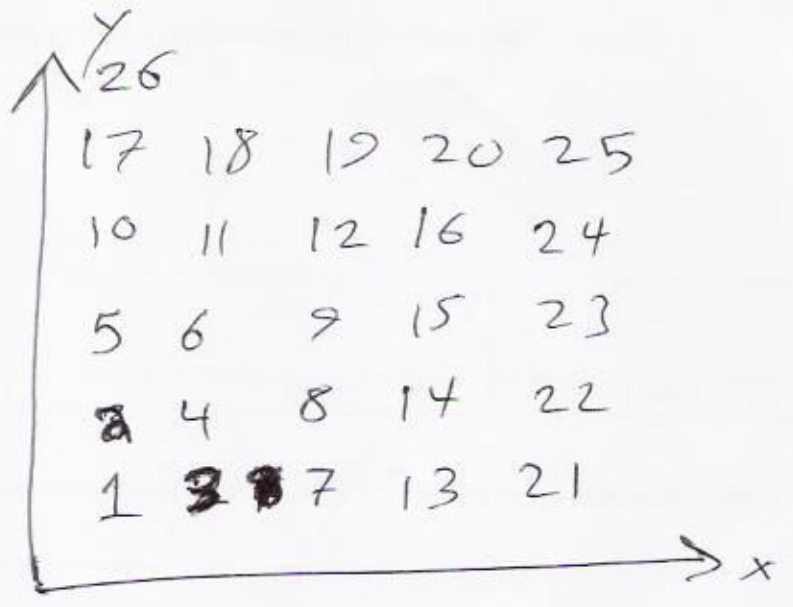 Y
26
17 18 19 20 25
10 11 12 16 24
5 6 9 15 23
2 4 8 14 22
1 3 7 13 21
x